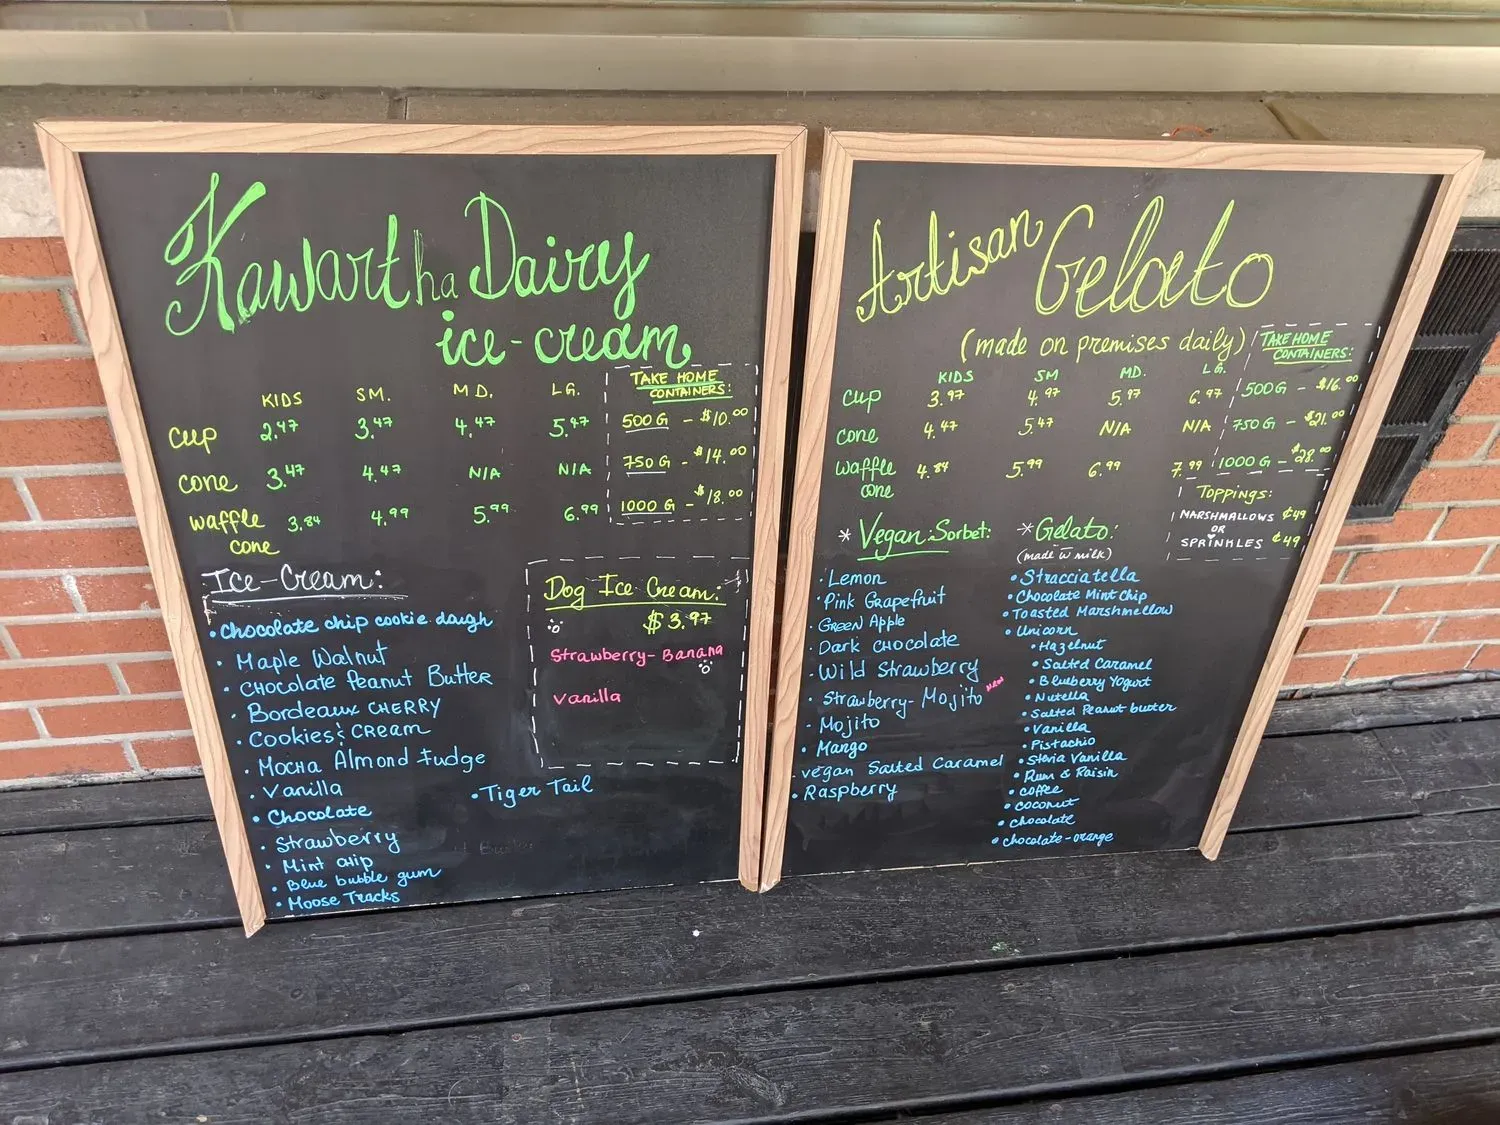 Kawartha Dairy
ice-cream
KIDS SM. MD. LG.
cup 2.47 3.47 4.47 5.47
cone 3.47 4.47 N/A N/A
waffle cone 3.84 4.99 5.99 6.99
TAKE HOME
CONTAINERS:
500 G - $10.00
750 G - $14.00
1000 G - $18.00
Ice-Cream:
• Chocolate chip cookie dough
• Maple Walnut
• Chocolate Peanut Butter
• Bordeaux CHERRY
• Cookies & CREAM
• Mocha Almond Fudge
• Vanilla
• Chocolate
• Strawberry
• Mint chip
• Blue bubble gum
• Moose Tracks
• Tiger Tail
Dog Ice Cream:
$3.97
Strawberry-Banana
Vanilla
Artisan Gelato
(made on premises daily)
KIDS SM MD. LG.
cup 3.97 4.97 5.97 6.97
cone 4.47 5.47 N/A N/A
waffle cone 4.84 5.99 6.99 7.99
TAKE HOME
CONTAINERS:
500 G - $16.00
750 G - $21.00
1000 G - $28.00
Toppings:
MARSHMALLOWS ¢49
OR
SPRINKLES ¢49
* Vegan Sorbet:
• Lemon
• Pink Grapefruit
• Green Apple
• Dark Chocolate
• Wild Strawberry
• Strawberry-Mojito NEW
• Mojito
• Mango
• vegan Salted Caramel
• Raspberry
* Gelato:
(made w milk)
• Stracciatella
• Chocolate Mint Chip
• Toasted Marshmellow
• Unicorn
• Hazelnut
• Salted Caramel
• Blueberry Yogurt
• Nutella
• Salted Peanut butter
• Vanilla
• Pistachio
• Stevia Vanilla
• Rum & Raisin
• coffee
• coconut
• chocolate
• chocolate-orange